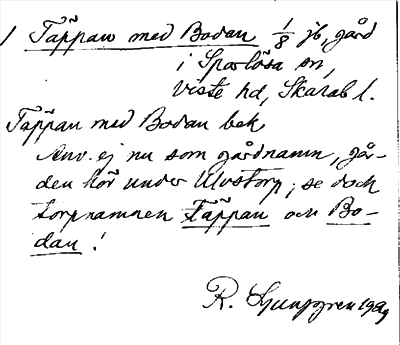 1 Täppan med Bodan 1/8 jb, gård
i Sparlösa sn,
Viste hd, Skarab l.
Täppan med Bodan bek
Anv. ej nu som gårdnamn, går-
den hör under Ulvstorp; se dock
torpnamnen Täppan och Bo-
dan!
R. Ljunggren 1929